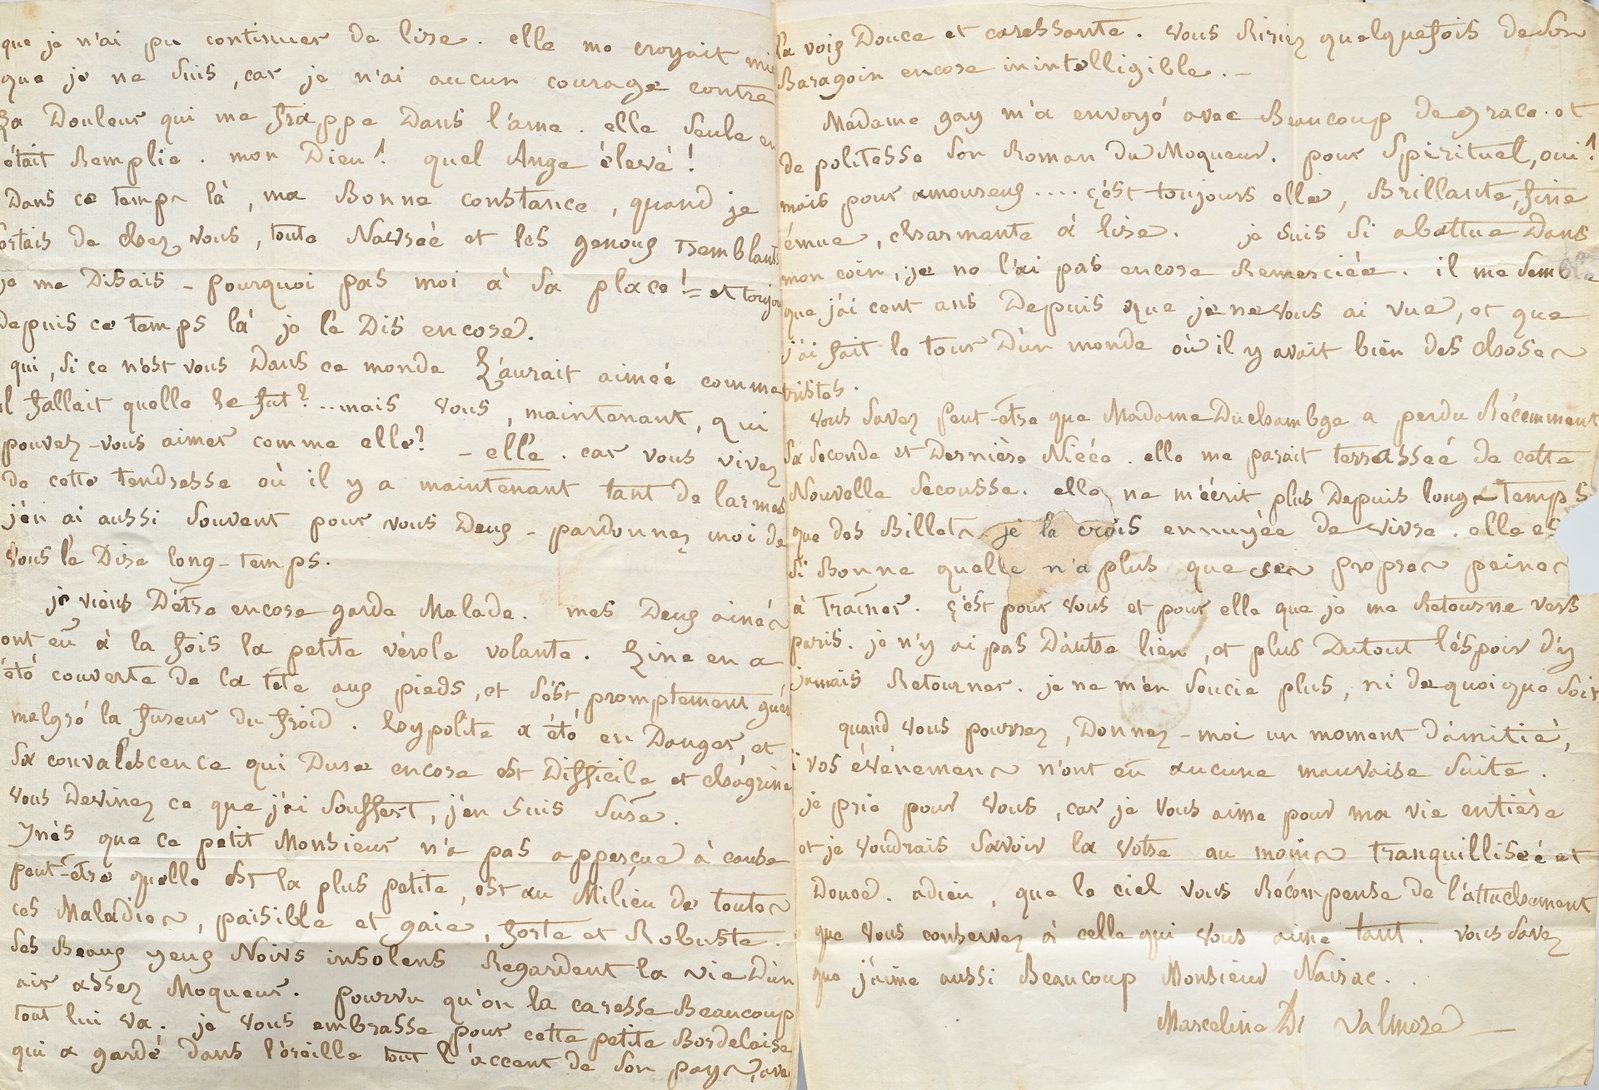 que je n'ai pu continuer de lire. elle me croyait
que je ne suis, car je n'ai aucun courage contre
La Douleur qui me frappe Dans l'ame. elle seule en
était Remplie. mon Dieu! quel Ange élevé!
Dans ce temps là, ma Bonne Constance, quand je
sortais de chez vous, toute Navrée et les genoux tremblants
je me Disais – pourquoi pas moi à sa place! – et toujours
Depuis ce temps là je le Dis encore.
qui, si ce n'est vous Dans ce monde L'aurait aimée comme
il fallait quelle le fut? ... mais vous, maintenant, qui
pouvez-vous aimer comme elle? – elle. car vous vivez
de cette tendresse où il y a maintenant tant de larmes
j'en ai aussi souvent pour vous Deux – pardonnez moi de
vous le Dire long-temps.
je viens D'être encore garde Malade. mes Deux ainés
ont eû à la fois la petite vérole volante. Line en a
été couverte de la tête aux pieds, et s'est promptement guérie
malgré la fureur du froid. hypolite a été en Danger, et
sa convalescence qui Dure encore est Difficile et chagrine
vous Devinez ce que j'ai souffert, j'en suis sûre.
Ynès que ce petit Monsieur n'a pas apperçue à cause
peut-être quelle est la plus petite, est au Milieu de toutes
ces Maladies, paisible et gaie, forte et Robuste.
ses Beaux yeux Noirs insolens Regardent la vie D'un
air assez Moqueur. pourvu qu'on la caresse Beaucoup
tout lui va. je vous embrasse pour cette petite Bordelaise
qui a gardé dans l'oreille tout l'accent de son pays, avec
la voix Douce et caressante. vous Ririez quelquefois de son
Baragoin encore inintelligible. –
Madame gay m'a envoyé avec Beaucoup de grace et
de politesse son Roman du Moqueur. pour spirituel, oui!
mais pour amoureux .... c'est toujours elle, Brillante, fine
émue, charmante à lire. je suis si abattue Dans
mon coin, je ne l'ai pas encore Remerciée. il me semble
que j'ai cent ans Depuis que je ne vous ai vue, et que
j'ai fait le tour D'un monde où il y avait bien des choses
tristes.
vous savez peut-être que Madame Duchambge a perdu Récemment
sa seconde et Dernière Niéce. elle me parait terrassée de cette
Nouvelle secousse. elle ne m'écrit plus Depuis long-temps
que des Billets je la crois ennuyée de vivre. elle es
si Bonne quelle n'a plus que ses propres peines
à Traîner. c'est pour vous et pour elle que je me Retourne vers
paris. je n'y ai pas D'autre lien, et plus Dutout l'éspoir d'y
jamais Retourner. je ne m'en soucie plus, ni de quoique soit
quand vous pourrez, Donnez-moi un moment D'amitié,
si vos événemens n'ont eû aucune mauvaise suite.
je prie pour vous, car je vous aime pour ma vie entière
et je voudrais savoir la votre au moins tranquillisée et
Douce. adieu, que le ciel vous Récompense de l'attachement
que vous conservez à celle qui vous aime tant. vous savez
que j'aime aussi Beaucoup Monsieur Nairac.
Marceline D. Valmore